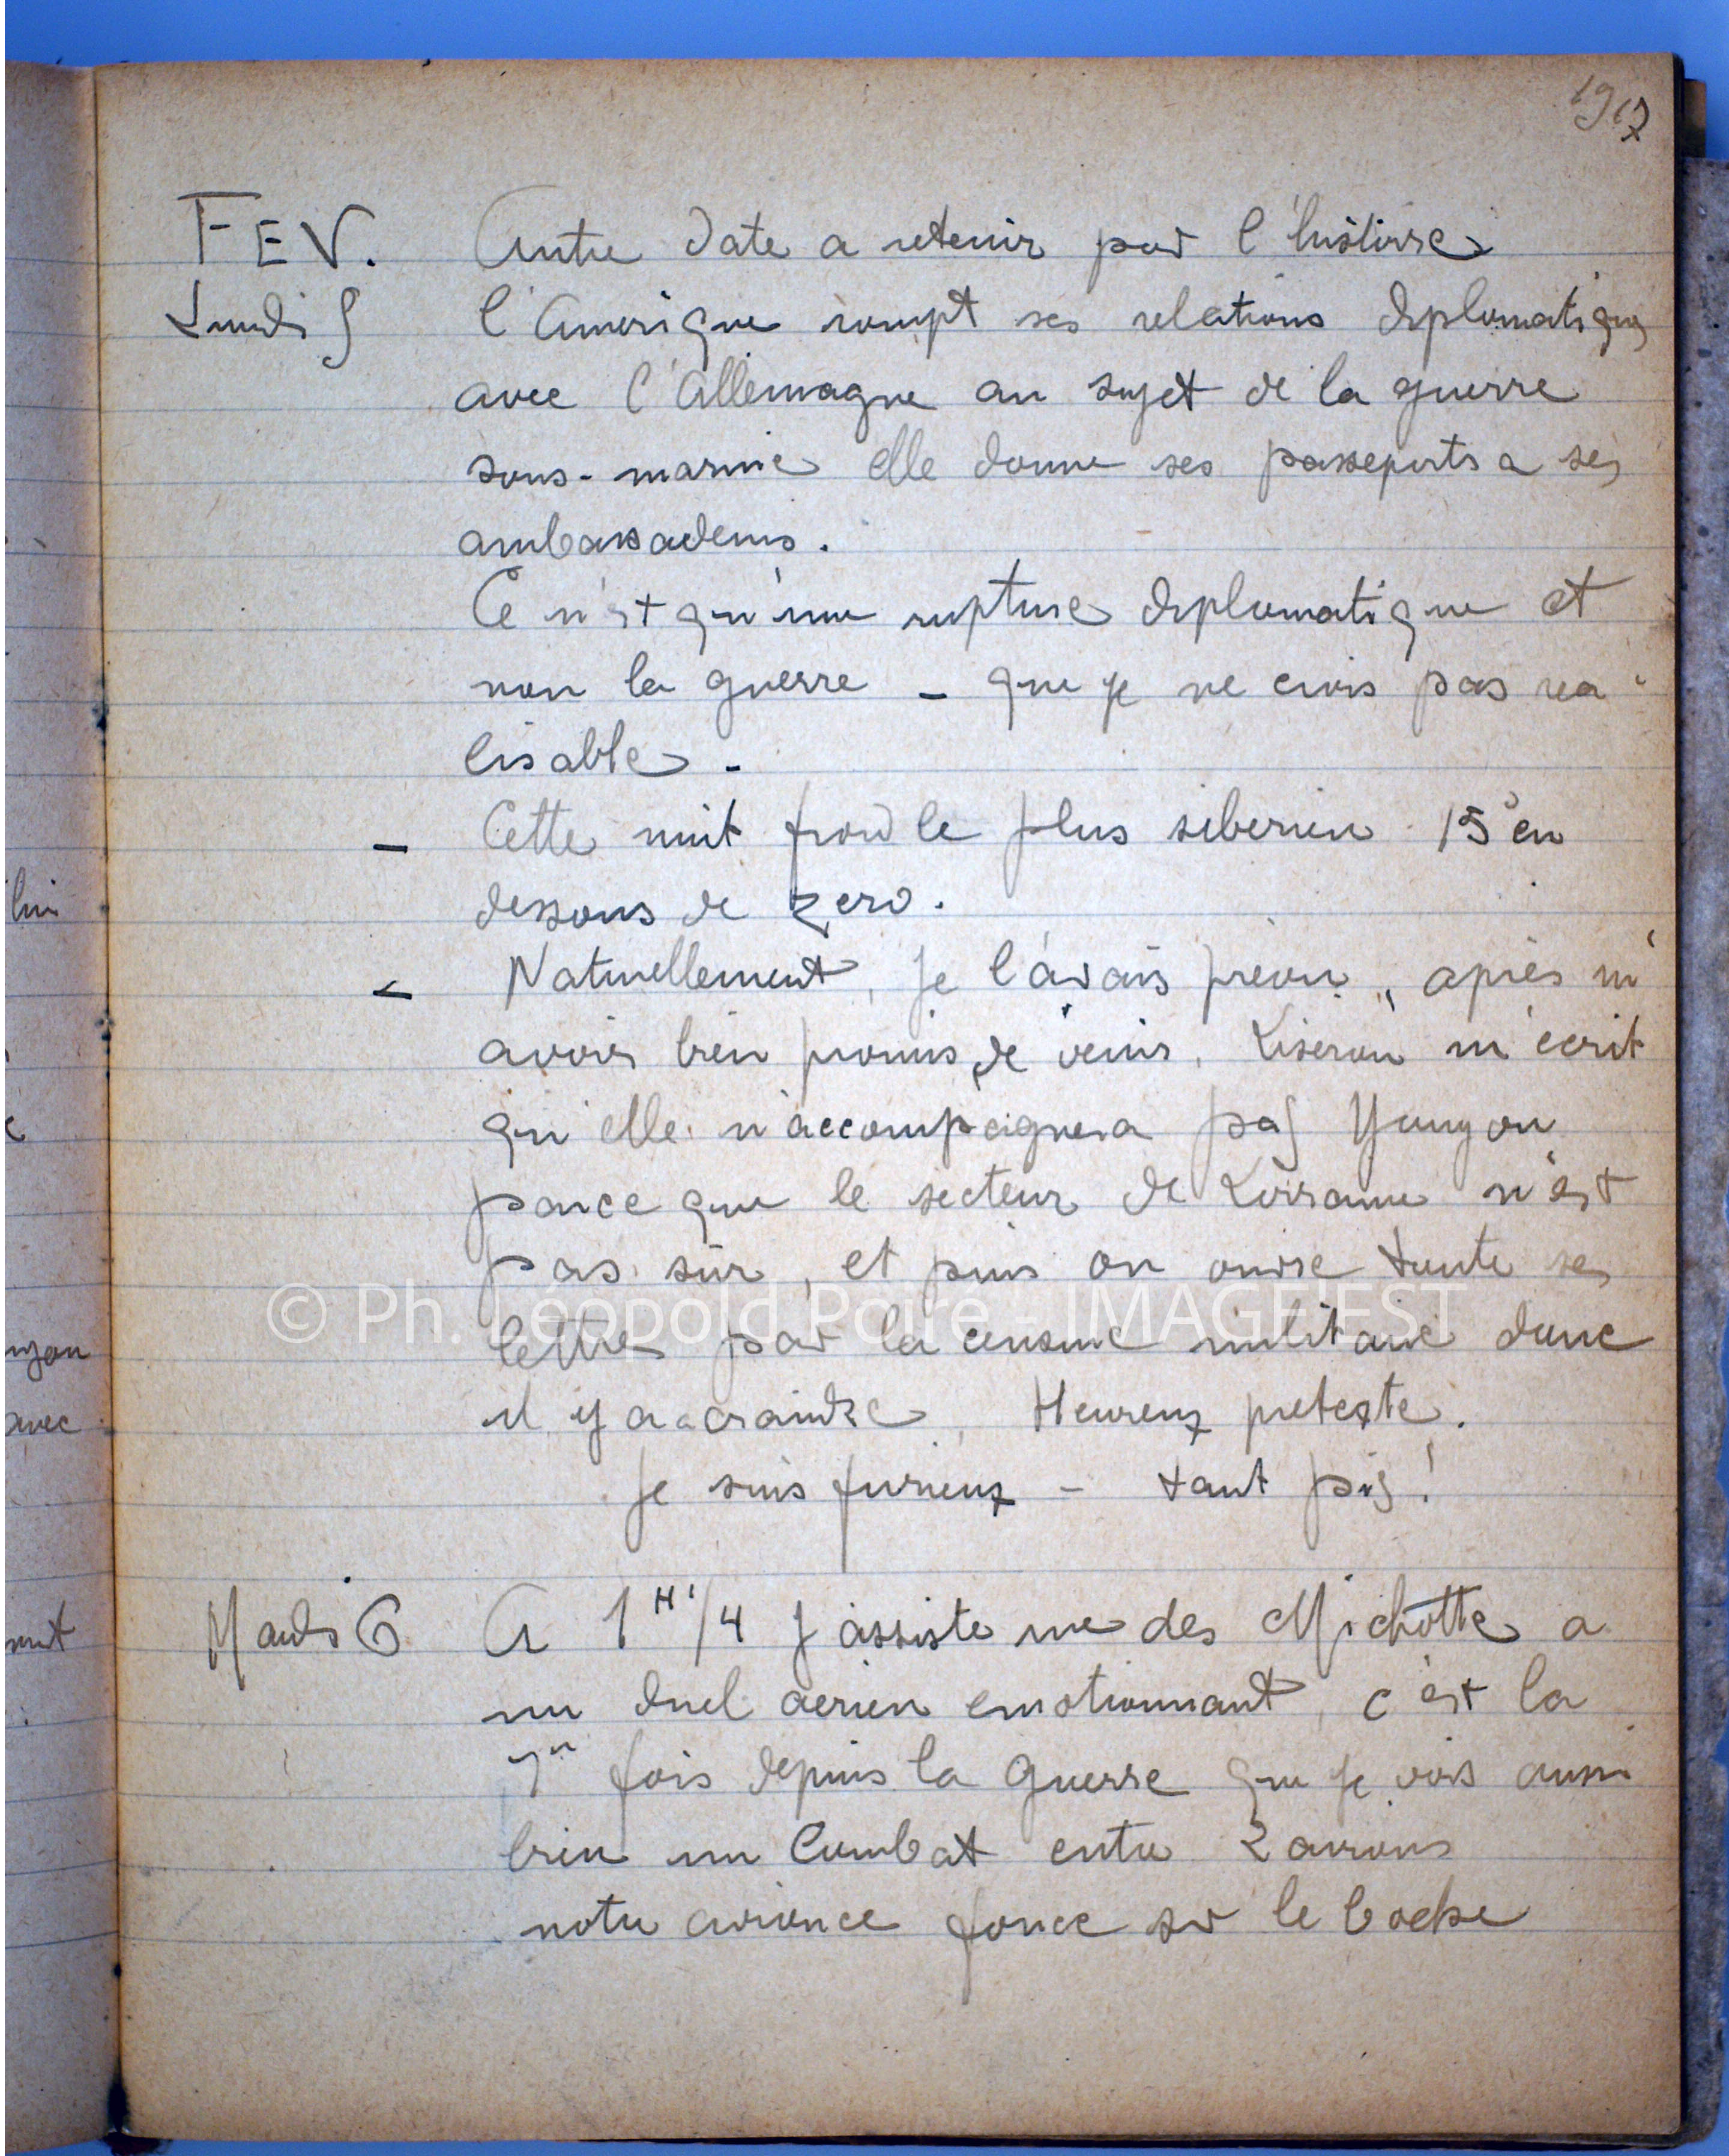 1917
FEV. Autre date a retenir par l'histoire
Lundi 5 l'Amerique rompt ses relations diplomatiques
avec l'Allemagne au sujet de la guerre
sous-marine elle donne ses passeports a ses
ambassadeurs.
Ce n'est qu'une rupture diplomatique et
non la guerre - que je ne crois pas rea
lisable -
- Cette nuit froid le plus siberien 15° en
dessous de zero.
- Naturellement, je l'avais prévu, après m'
avoir bien promis de venir, Liseron m'écrit
qu'elle n'accompagnera pas Yungon
parce que le secteur de Lorraine n'est
pas sûr, et puis on ouvre toute ses
lettres par la censure militaire donc
il y a a craindre, Heureux pretexte.
Je suis furieux - tant pis!
Mardi 6 A 1H 1/4 j'assiste rue des Michotte a
un duel aerien emotionnant, c'est la
1re fois depuis la Guerre que je vois aussi
bien un Combat entre 2 avions
notre avion fonce sur le boche
lui
avec
© Ph. Léopold Poiré - IMAGE'EST